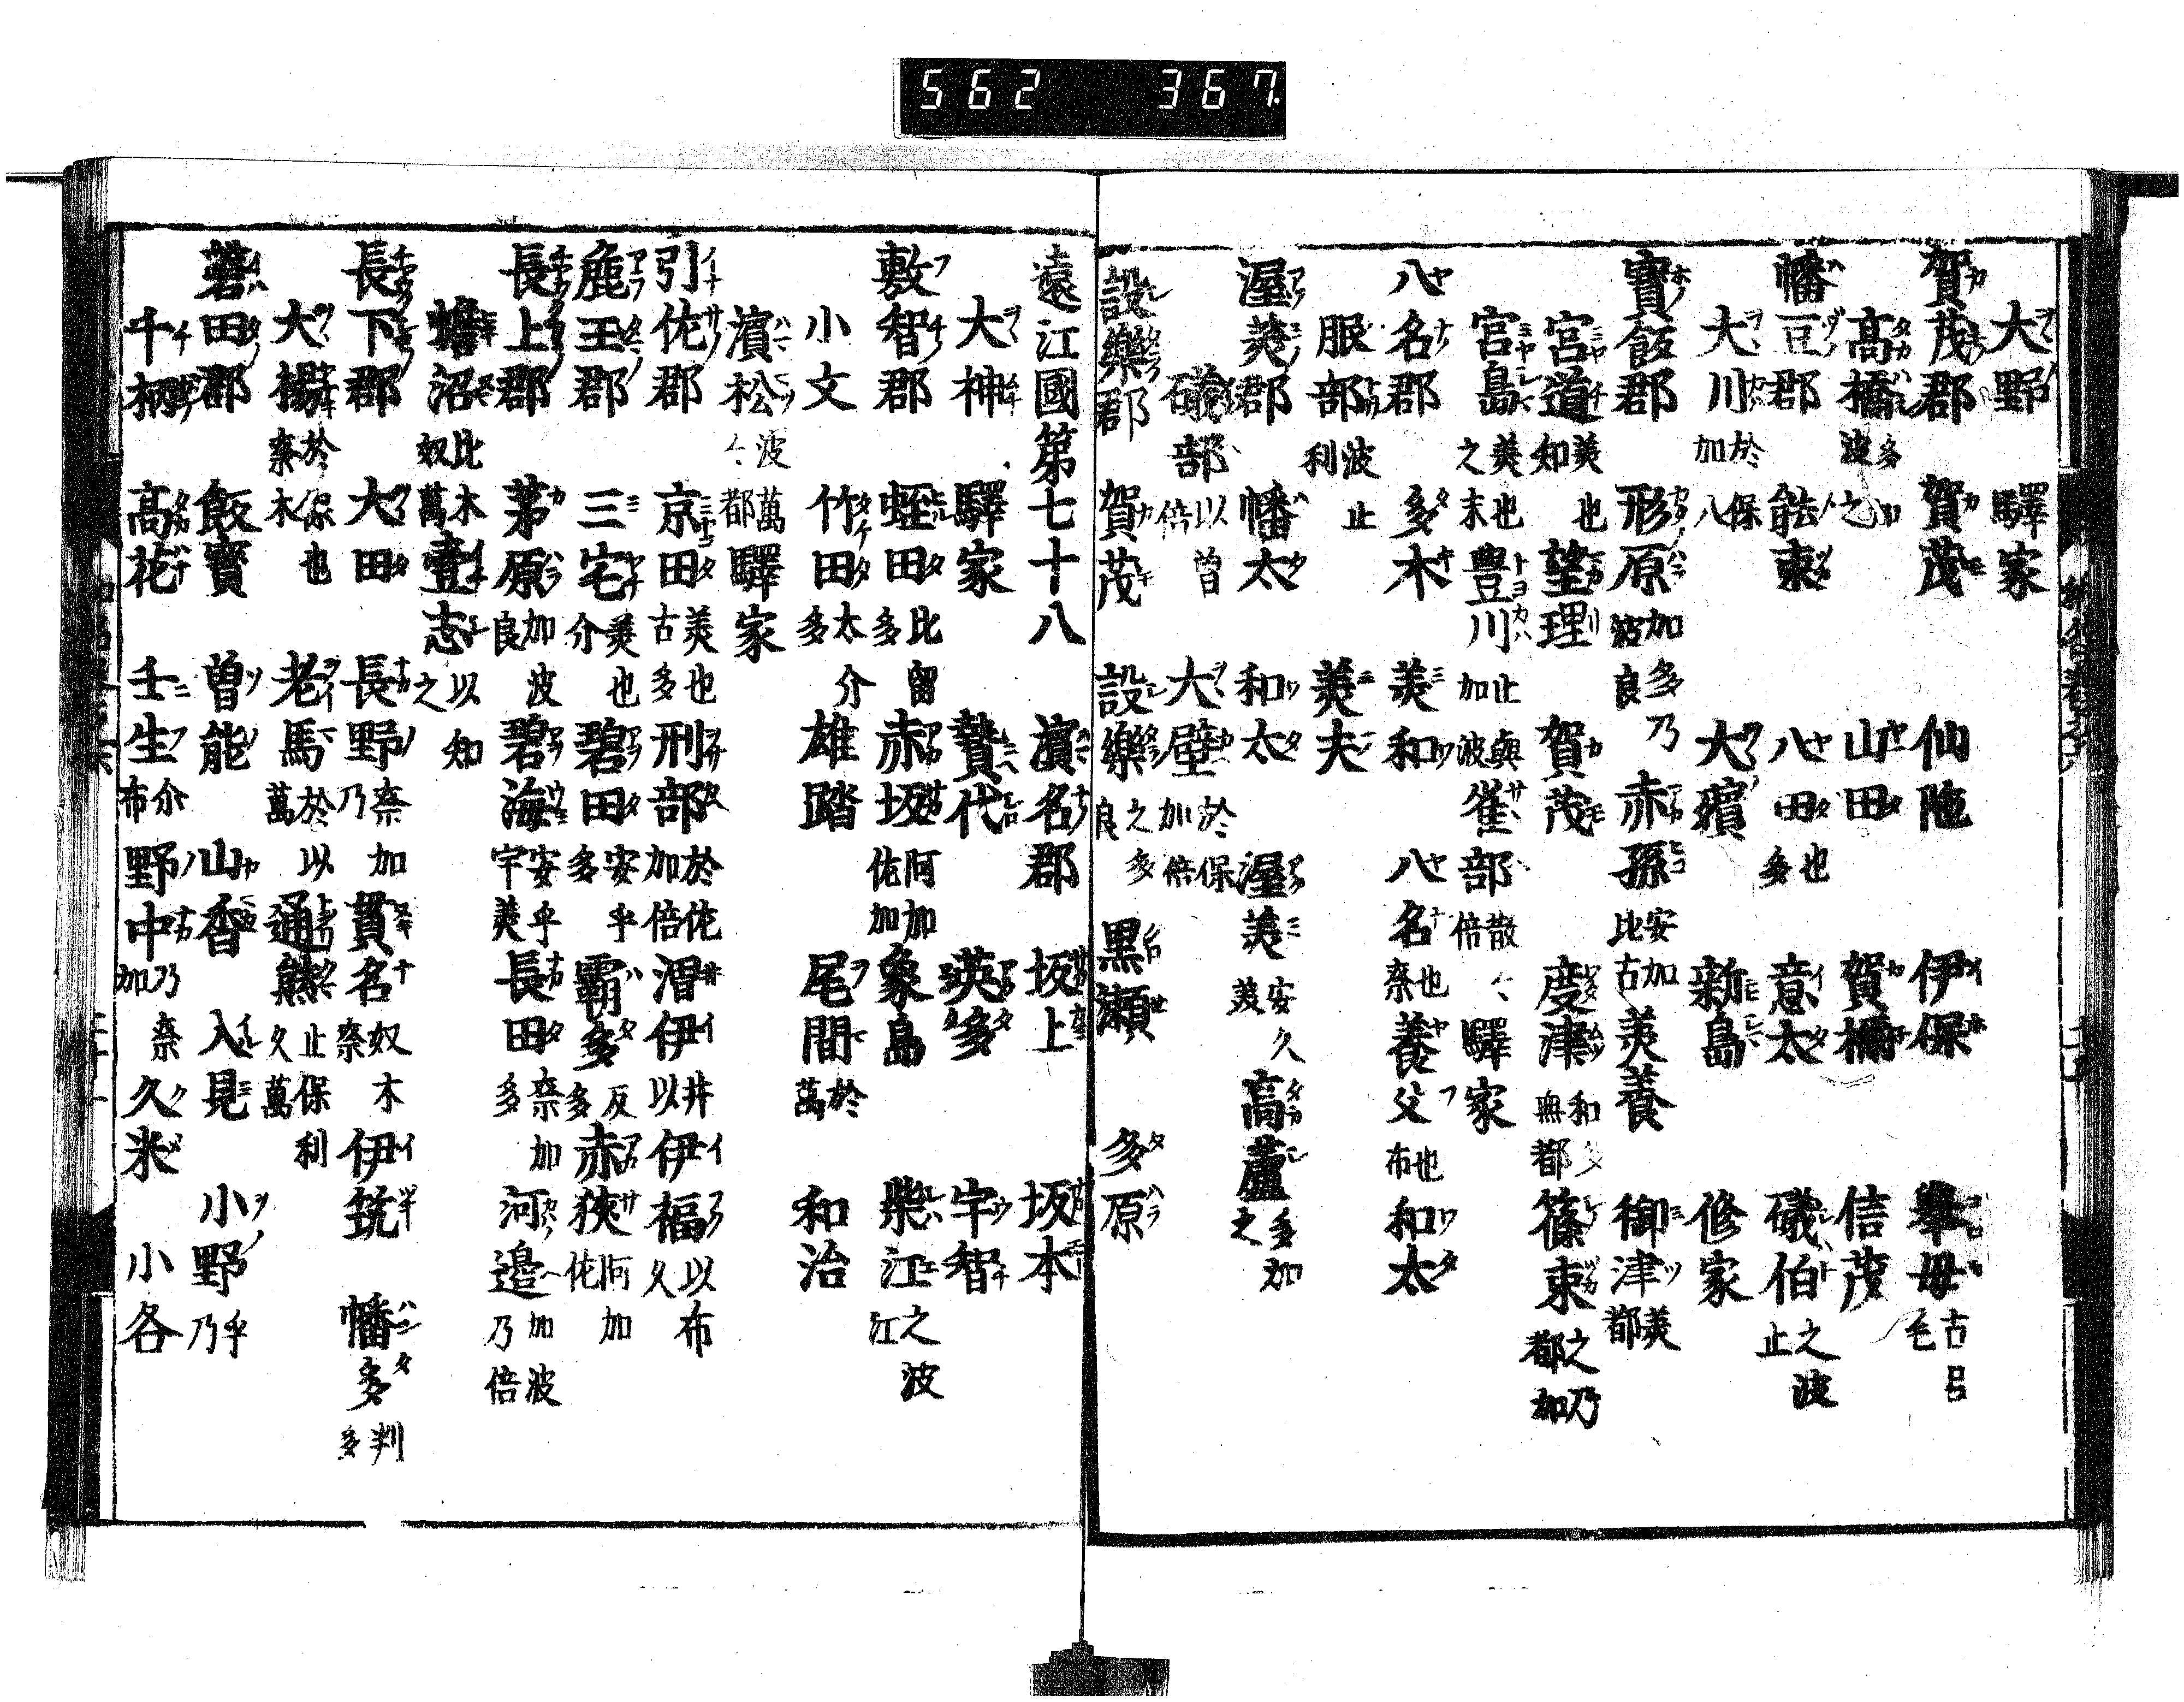 562 367
大野 驛家
賀茂郡 賀茂 仙陁 伊保 擧母古呂毛
高橋多加波之 山田 賀禰 信茂
幡豆郡 能束 八田也多 意太 礒伯之波止
大川於保加八 大濱 新島 修家
寶飯郡 形原加多乃波良 赤孫安加比古 美養 御津美都
宮道美也知 望理 賀茂 度津和多無都 篠束之乃都加
宮島美也之末 豊川止與加波 雀部散〻倍 驛家
八名郡 多木 美和 八名也奈 養父也布 和太
服部波止利 美夫
渥美郡 幡太 和太 渥美安久美 高蘆多加之
礒部以曽倍 大壁於保加倍
設樂郡 賀茂 設樂之多良 黒瀬 多原
遠江國第七十八 濵名郡 坂上 坂本
大神 驛家 贄代 英多 宇智
敷智郡 蛭田比留多 赤坂阿加佐加 象島 柴江之波江
小文 竹田太介多 雄踏 尾間於萬 和治
濵松波萬〻都 驛家
引佐郡 京田美也古多 刑部於佐加倍 渭伊井以 伊福以布久
麁玉郡 三宅美也介 碧田安乎多 覇多反多 赤狹阿加佐
長上郡 茅原加波良 碧海安乎宇美 長田奈加多 河邉加波乃倍
蟾沼比木奴萬 壹志以知之
長下郡 大田 長野奈加乃 貫名奴木奈 伊筑 幡多判多
大楊於保也奈木 老馬於以萬 通熊止保利久萬
磐田郡 飯寳 曽能 山香 入見 小野乎乃
千柄 高花 壬生介布 野中乃奈加 久米 小各